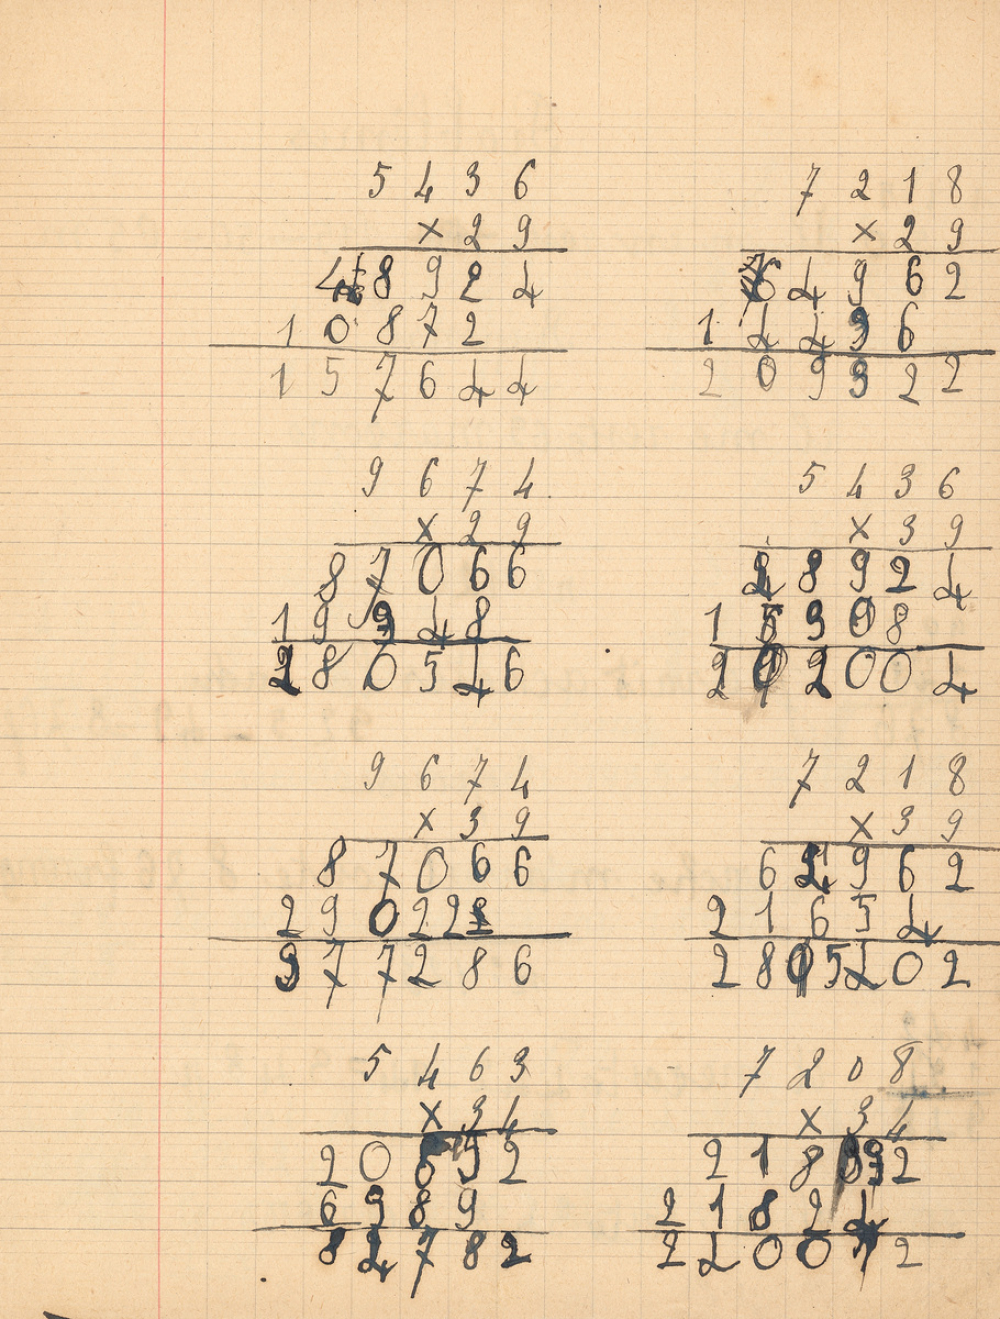 5 4 3 6
× 2 9
4 8 9 2 4
1 0 8 7 2
1 5 7 6 4 4
7 2 1 8
× 2 9
6 4 9 6 2
1 4 4 3 6
2 0 9 3 2 2
9 6 7 4
× 2 9
8 7 0 6 6
1 9 3 4 8
2 8 0 5 4 6
5 4 3 6
× 3 9
4 8 9 2 4
1 5 3 0 8
2 0 2 0 0 4
9 6 7 4
× 3 9
8 7 0 6 6
2 9 0 2 2
3 7 7 2 8 6
7 2 1 8
× 3 9
6 4 9 6 2
2 1 6 5 4
2 8 5 0 2
5 4 6 3
× 3 4
2 0 5 2
6 9 8 9
8 4 7 8 2
7 2 0 8
× 3 4
2 1 8 3 2
2 1 8 2 4
2 4 0 0 2